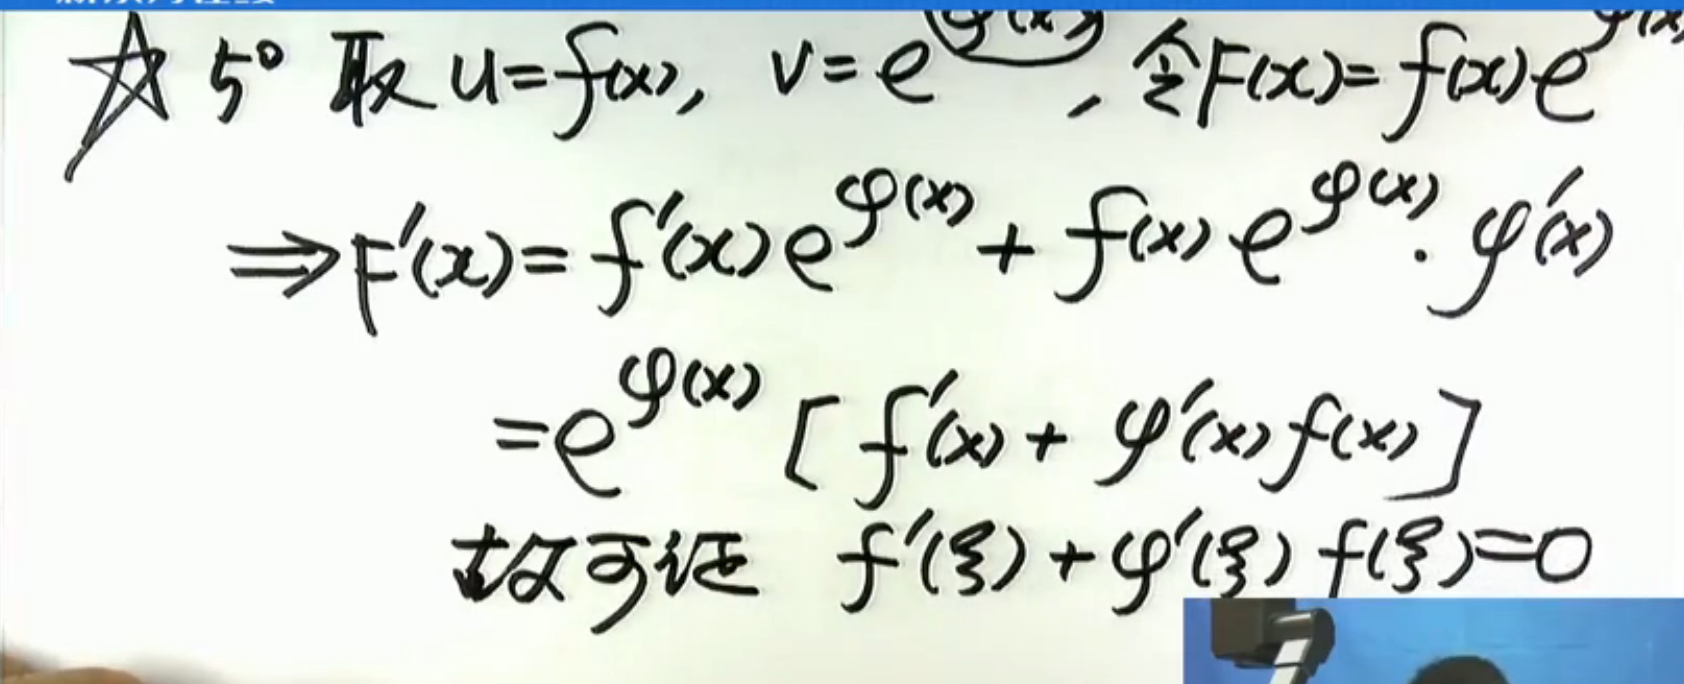 ☆ 5° 取 u=f(x), v=e^φ(x), 令F(x)=f(x)e^φ(x)
⇒F'(x)=f'(x)e^φ(x)+f(x)e^φ(x)·φ'(x)
=e^φ(x)[f'(x)+φ'(x)f(x)]
故可证 f'(ξ)+φ'(ξ)f(ξ)=0